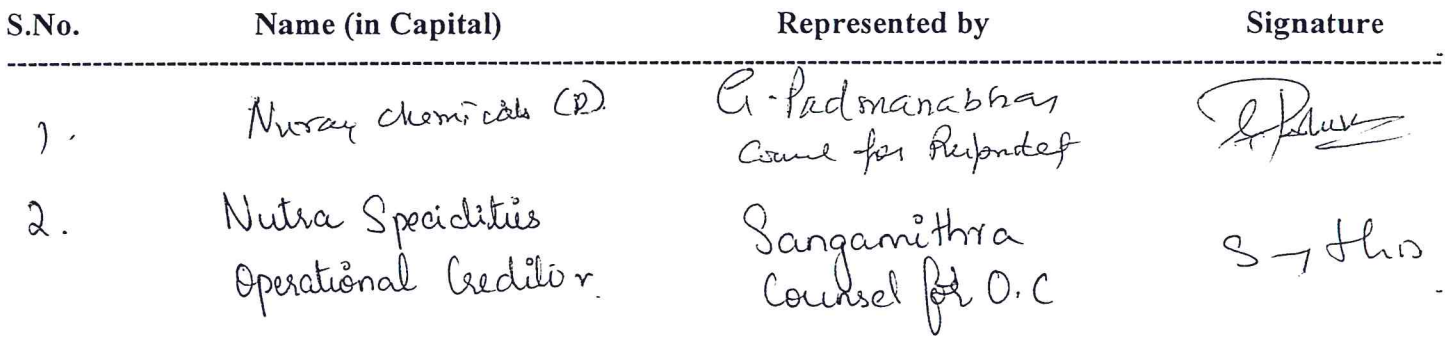 S.No. Name (in Capital) Represented by Signature
1. Nuray chemicals (R). G. Padmanabhan
Counsel for Respondent
2. Nutra Specialities Sangamithra
Operational Creditor. Counsel for O.C